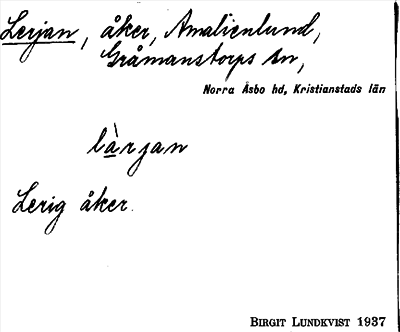 Lerjan, åker, Amalienlund,
Gråmanstorps sn,
Norra Åsbo hd, Kristianstads län
làrjan
Lerig åker.
BIRGIT LUNDKVIST 1937